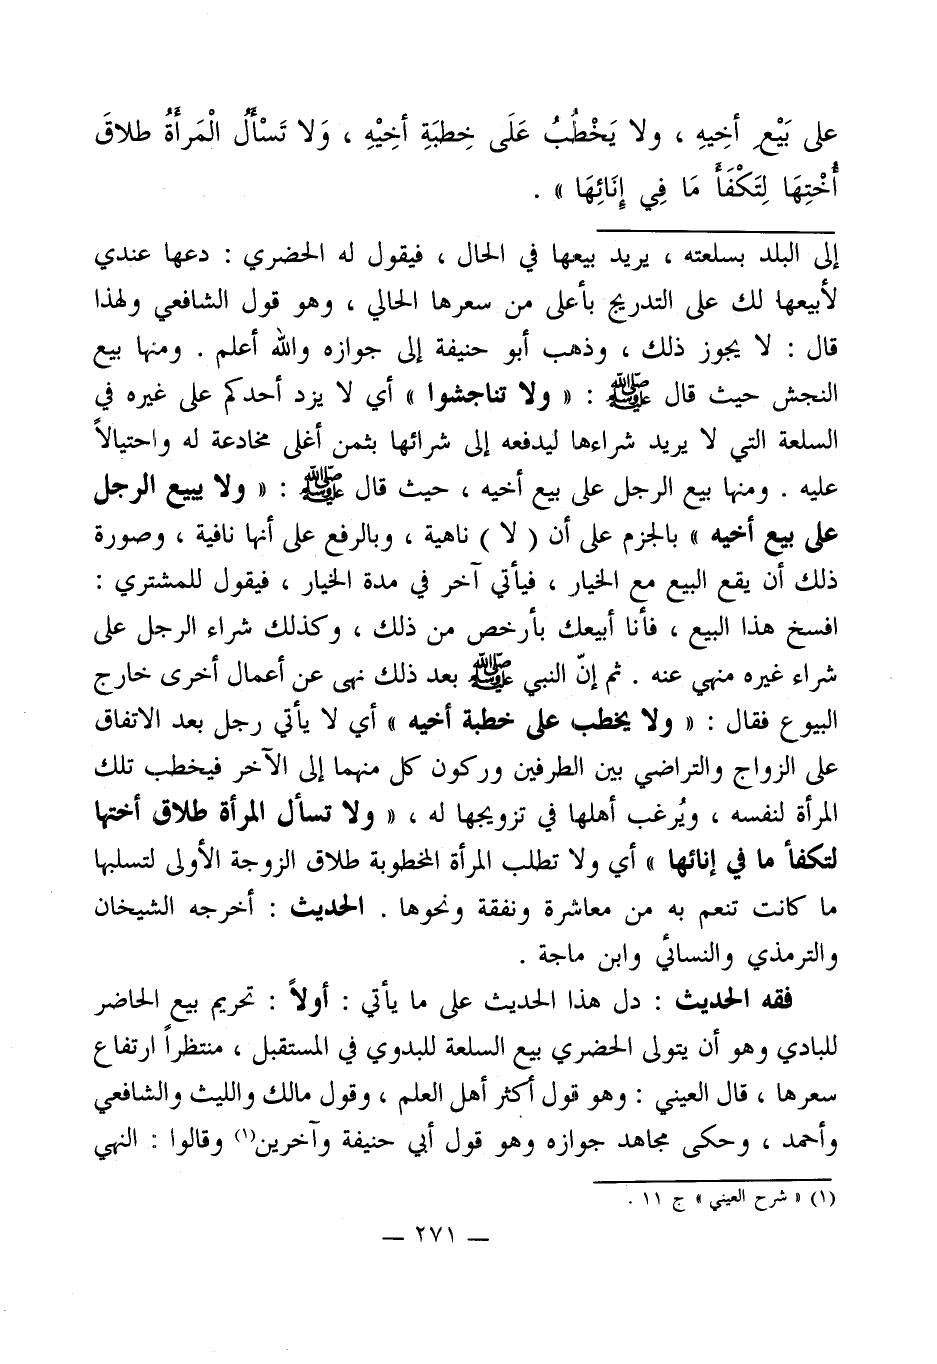 على بَيْعِ أخِيهِ ، ولا يَخْطُبُ عَلَى خِطبَةِ أخِيْهِ ، وَلا تَسْأَلُ الْمَرأَةُ طلاقَ
أُخْتِهَا لِتَكْفَأَ مَا فِي إِنَائِهَا » .
إلى البلد بسلعته ، يريد بيعها في الحال ، فيقول له الحضري : دعها عندي
لأبيعها لك على التدريج بأعلى من سعرها الحالي ، وهو قول الشافعي ولهذا
قال : لا يجوز ذلك ، وذهب أبو حنيفة إلى جوازه والله أعلم . ومنها بيع
النجش حيث قال ﷺ : « ولا تناجشوا » أي لا يزد أحدكم على غيره في
السلعة التي لا يريد شراءها ليدفعه إلى شرائها بثمن أغلى مخادعة له واحتيالاً
عليه . ومنها بيع الرجل على بيع أخيه ، حيث قال ﷺ : « ولا يبيع الرجل
على بيع أخيه » بالجزم على أن ( لا ) ناهية ، وبالرفع على أنها نافية ، وصورة
ذلك أن يقع البيع مع الخيار ، فيأتي آخر في مدة الخيار ، فيقول للمشتري :
افسخ هذا البيع ، فأنا أبيعك بأرخص من ذلك ، وكذلك شراء الرجل على
شراء غيره منهي عنه . ثم إنّ النبي ﷺ بعد ذلك نهى عن أعمال أخرى خارج
البيوع فقال : « ولا يخطب على خطبة أخيه » أي لا يأتي رجل بعد الاتفاق
على الزواج والتراضي بين الطرفين وركون كل منهما إلى الآخر فيخطب تلك
المرأة لنفسه ، ويُرغب أهلها في تزويجها له ، « ولا تسأل المرأة طلاق أختها
لتكفأ ما في إنائها » أي ولا تطلب المرأة المخطوبة طلاق الزوجة الأولى لتسلبها
ما كانت تنعم به من معاشرة ونفقة ونحوها . الحديث : أخرجه الشيخان
والترمذي والنسائي وابن ماجة .
فقه الحديث : دل هذا الحديث على ما يأتي : أولاً : تحريم بيع الحاضر
للبادي وهو أن يتولى الحضري بيع السلعة للبدوي في المستقبل ، منتظراً ارتفاع
سعرها ، قال العيني : وهو قول أكثر أهل العلم ، وقول مالك والليث والشافعي
وأحمد ، وحكى مجاهد جوازه وهو قول أبي حنيفة وآخرين(١) وقالوا : النهي
(١) « شرح العيني » ج ١١ .
— ٢٧١ —